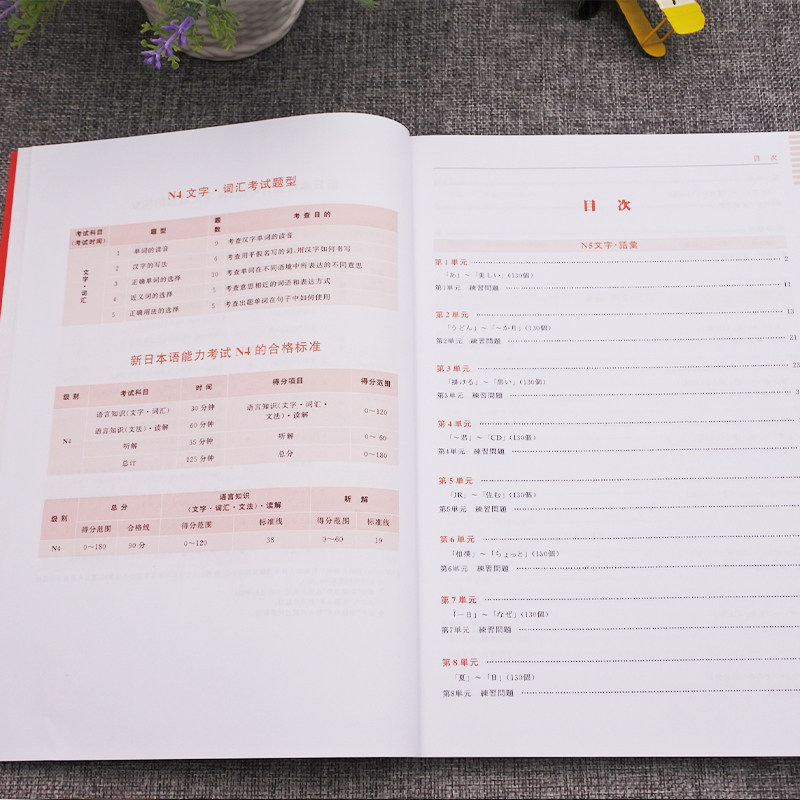 N4 文字・词汇考试题型
考试科目(考试时间) 题型 题数 考查目的
文字・词汇
1 单词的读音 9 考查汉字单词的读音
2 汉字的写法 6 考查用平假名写的词,用汉字如何书写
3 正确单词的选择 10 考查单词在不同语境中所表达的不同意思
4 近义词的选择 考查意思相近的词语和表达方式
5 正确用法的选择 5 考查出题单词在句子中如何使用
新日本语能力考试 N4 的合格标准
级别 考试科目 时间 得分项目 得分范围
N4
语言知识(文字・词汇) 30 分钟 语言知识(文字・词汇・文法)・读解 0～120
语言知识(文法)・读解 60 分钟
听解 35 分钟 听解 0～60
总计 125 分钟 总分 0～180
级别 总分 语言知识(文字・词汇・文法)・读解 听解
得分范围 合格线 得分范围 标准线 得分范围 标准线
N4 0～180 90 分 0～120 38 0～60 19
目 次
目 次
N5文字・語彙
第1単元 2
「あ」～「美しい」(130個)
第1単元 練習問題 11
第2単元 13
「うどん」～「～か月」(130個)
第2単元 練習問題 23
第3単元
「掛ける」～「黒い」(130個)
第3単元 練習問題
第4単元
「～君」～「CD」(130個)
第4単元 練習問題
第5単元
「JR」～「住む」(130個)
第5単元 練習問題
第6単元
「相撲」～「ちょっと」(130個)
第6単元 練習問題
第7単元
「一日」～「なぜ」(130個)
第7単元 練習問題
第8単元
「夏」～「日」(130個)
第8単元 練習問題